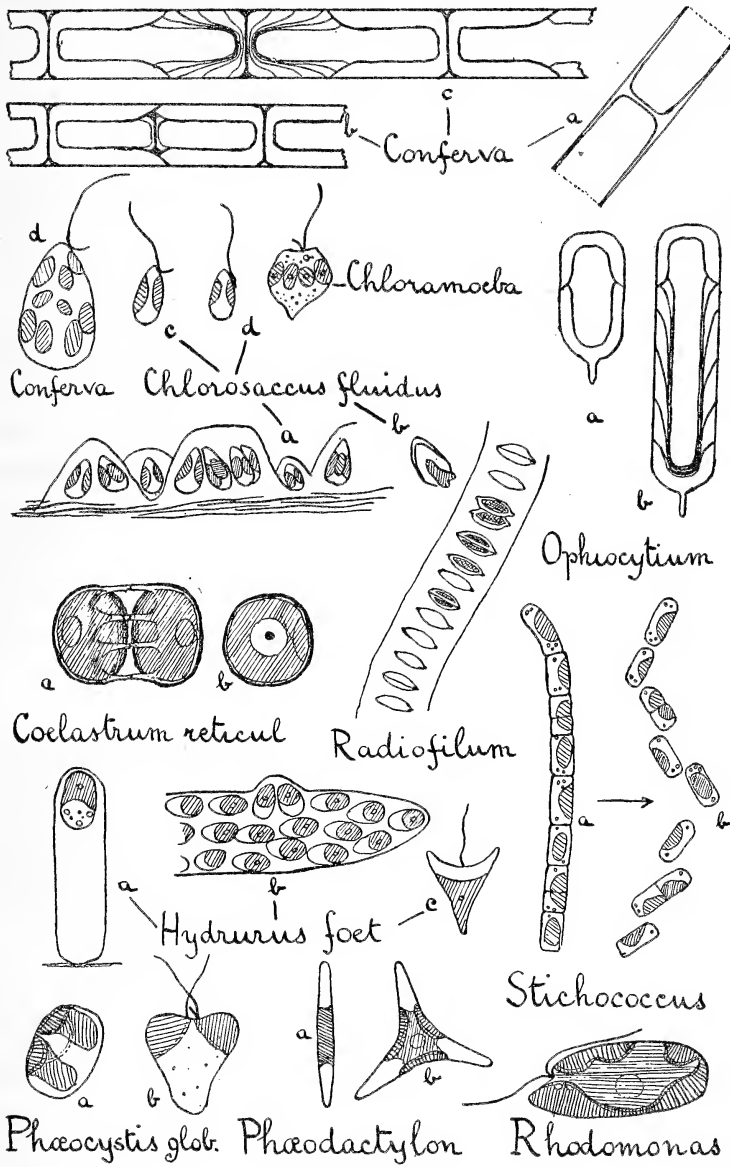 c
b Conferva a
d
Chloramoeba
c d
Conferva Chlorosaccus fluidus
a b
a
b
Ophiocytium
a b
Coelastrum reticul
Radiofilum
a b
a
b
c
Hydrurus foet
Stichococcus
a b
a b
Phæocystis glob. Phæodactylon Rhodomonas